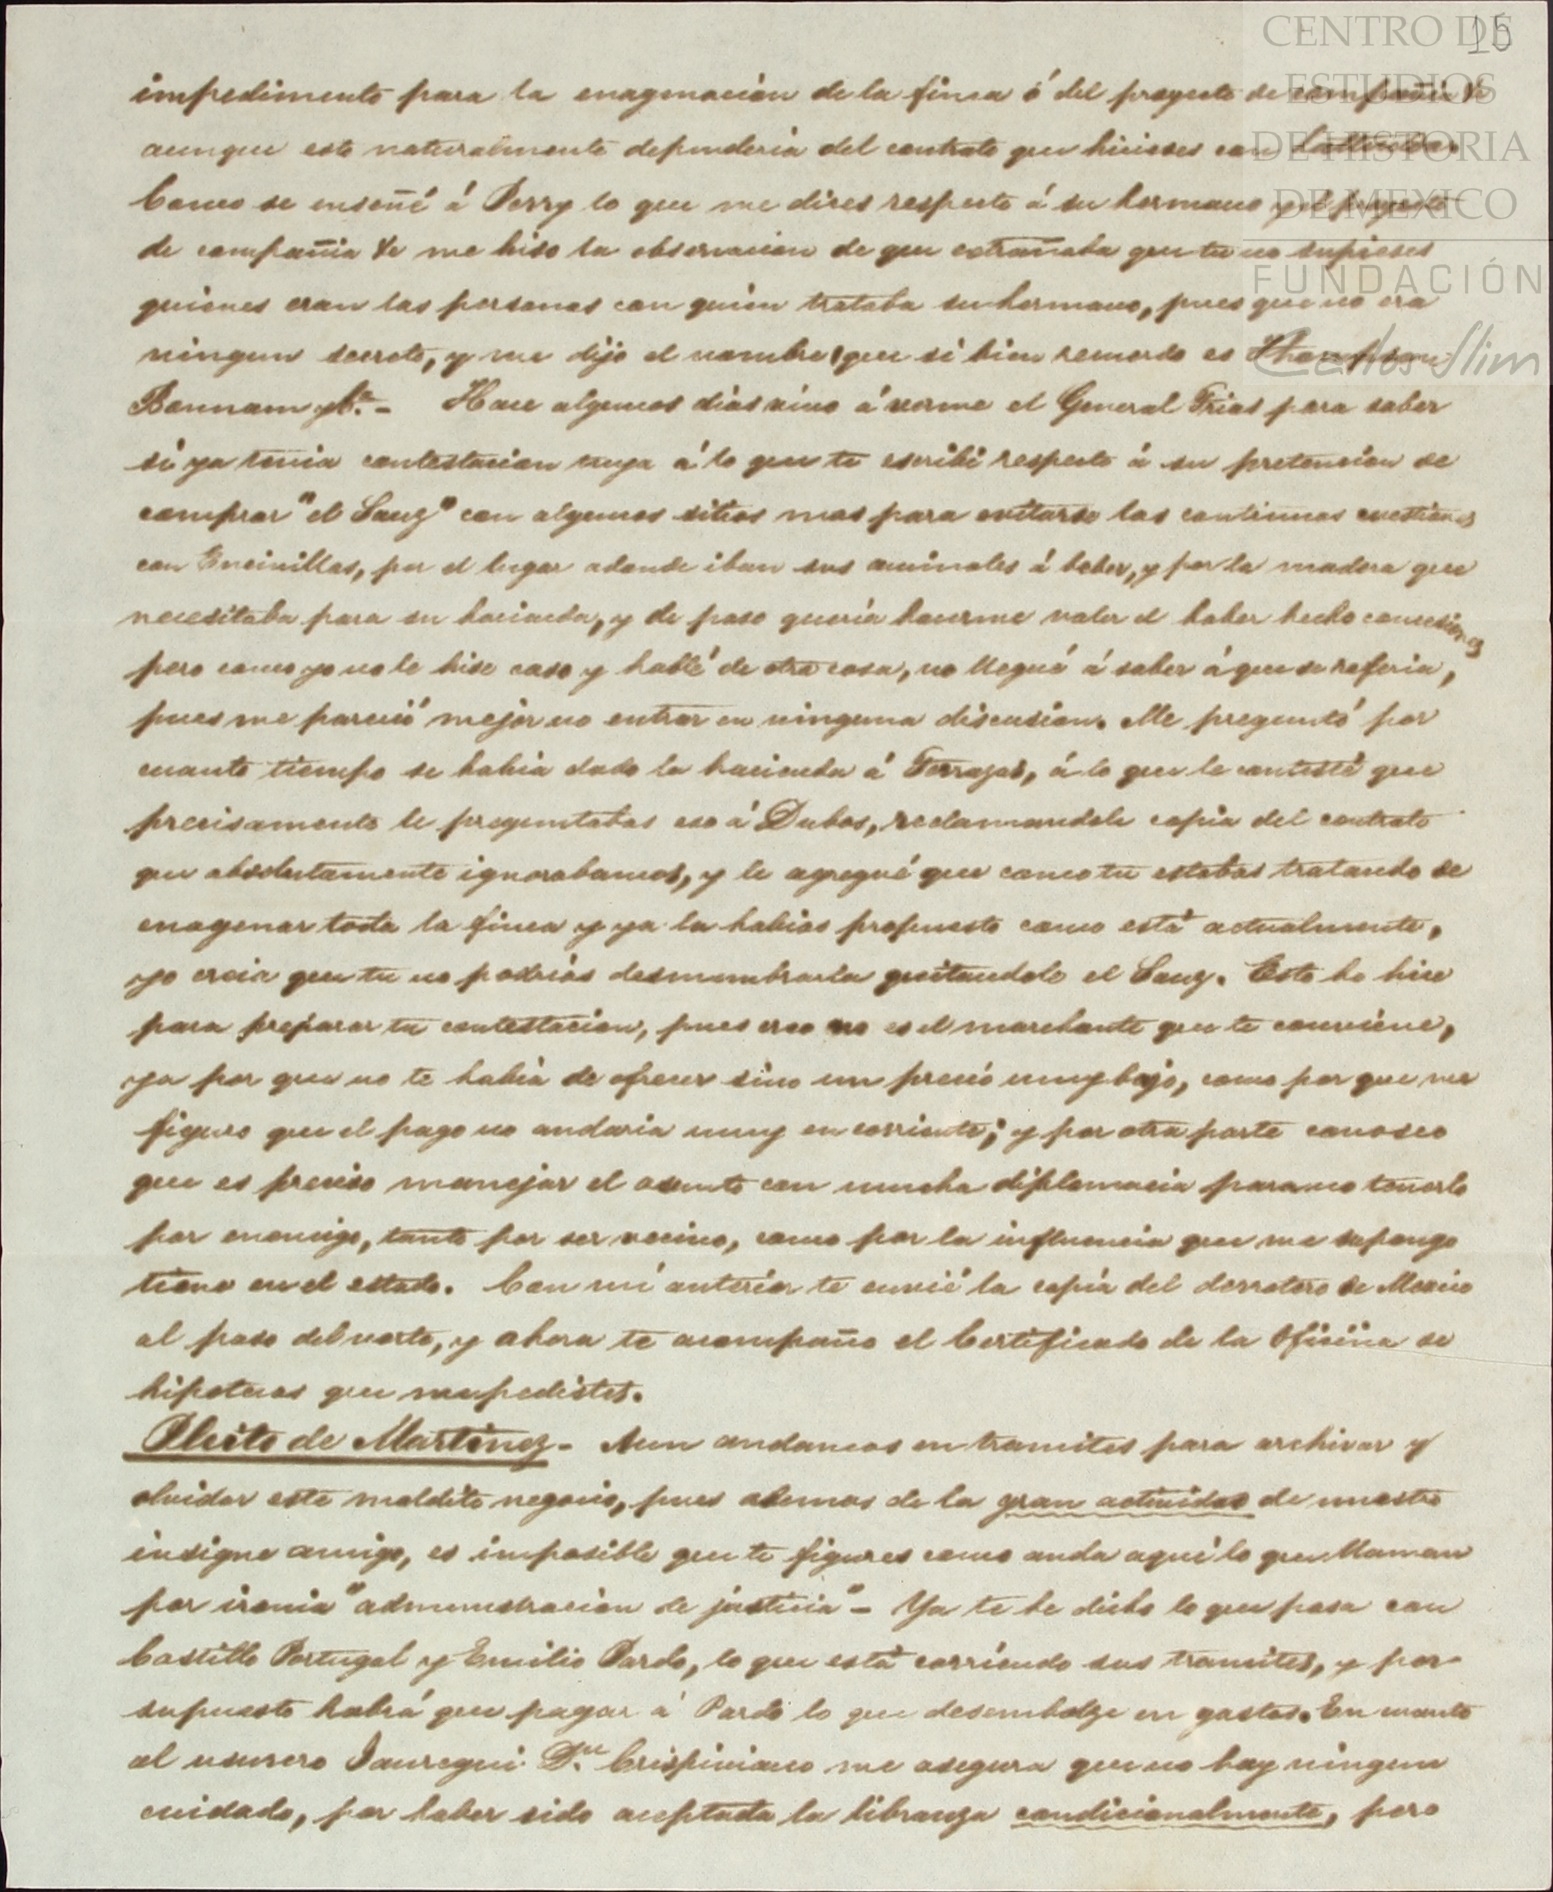 15
CENTRO DE
ESTUDIOS
DE HISTORIA
DE MEXICO
FUNDACIÓN
Carlos Slim
impedimento para la enagenación de la finca ó del proyecto de compañia &c
aunque esto naturalmente dependeria del contrato que hicieses con
Como se enseñé á Perry lo que me dices respecto á su hermano y el proyecto
de compañia &c me hiso la observacion de que extrañaba que tu no supieses
quienes eran las personas con quien trataba su hermano, pues que no era
ningun secreto, y me dijo el nombre, que si bien recuerdo es Thompson
Bonnam y Ca. - Hace algunos dias vino á verme el General Frias para saber
si ya tenia contestacion tuya á lo que te escribi respecto á su pretencion de
comprar "el Sauz" con algunos sitios mas para evitarse las continuas cuestiones
con Encinillas, por el lugar adonde iban sus animales á beber, y por la madera que
necesitaba para su hacienda, y de paso queria hacerme valer el haber hecho concesiones
pero como yo no le hise caso y hablé de otra cosa, no llegué á saber á que se referia,
pues me pareció mejor no entrar en ninguna discusion. Me preguntó por
cuanto tiempo se habia dado la hacienda á Terrazas, á lo que le contesté que
precisamente le preguntabas eso á Dubos, reclamandole copia del contrato
que absolutamente ignorabamos, y le agregué que como tu estabas tratando de
enagenar toda la finca y ya la habias propuesto como está actualmente,
yo creia que tu no podrias desmembrarla quitandole el Sauz. Esto lo hice
para preparar tu contestacion, pues creo no es el marchante que te conviene,
ya por que no te habia de ofrecer sino un precio muy bajo, como por que me
figuro que el pago no andaria muy en corriente; y por otra parte conosco
que es preciso manejar el asunto con mucha diplomacia para no tenerlo
por enemigo, tanto por ser vecino, como por la influencia que me supongo
tiene en el estado. Con mi anterior te envié la copia del derrotero de Mexico
al paso del norte, y ahora te acompaño el Certificado de la Oficina de
hipotecas que me pedistes.
Pleito de Martinez - Aun andamos en tramites para archivar y
olvidar este maldito negocio, pues ademas de la gran actividad de nuestro
insigne amigo, es imposible que te figures como anda aqui lo que llaman
por ironia "administracion de justicia" - Ya te he dicho lo que pasa con
Castillo Portugal y Emilio Pardo, lo que está corriendo sus tramites, y por
supuesto habrá que pagar á Pardo lo que desembolze en gastos. En cuanto
al usurero Jauregui Dn. Crispiniano me asegura que no hay ningun
cuidado, por haber sido aceptada la libranza condicionalmente, pero